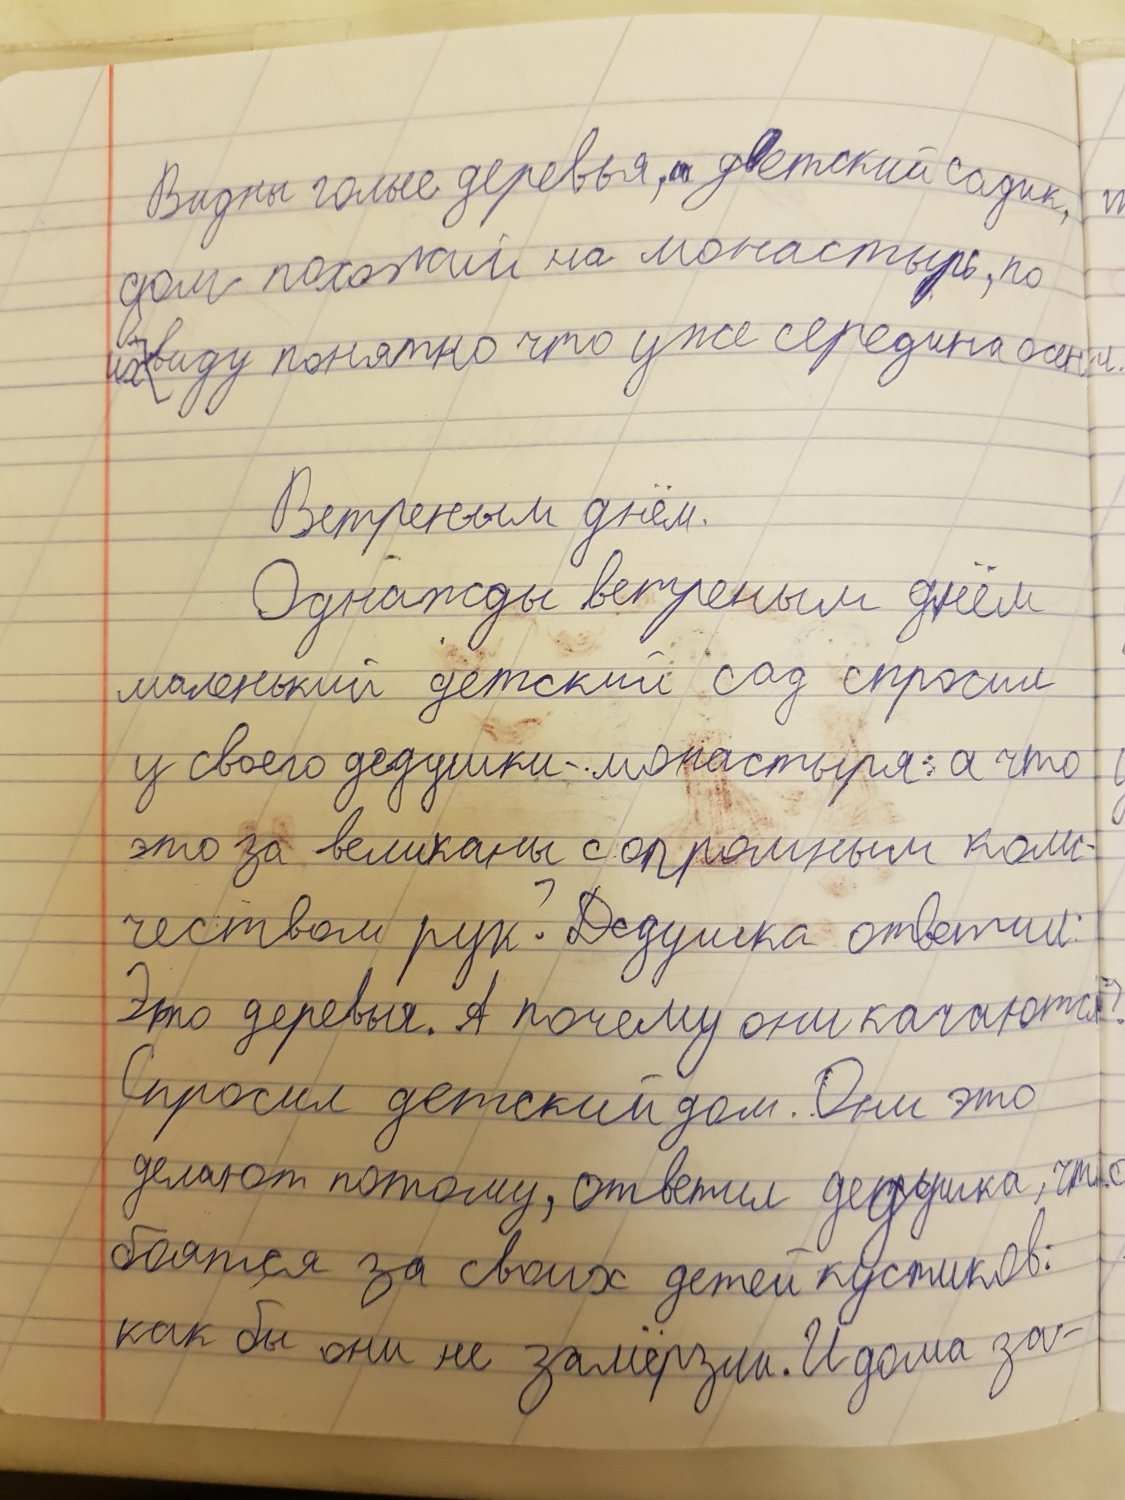 Видны голые деревья, а детский садик,
дом похожий на монастырь, по
их виду понятно что уже середина осени.
Ветреным днём.
Однажды ветреным днём
маленький детский сад спросил
у своего дедушки-монастыря: а что
это за великаны с огромным коли-
чеством рук? Дедушка ответил:
Это деревья. А почему они качаются?
Спросил детский дом. Они это
делают потому, ответил дедушка, что
боятся за своих детей кустиков:
как бы они не замёрзли. И дома за-